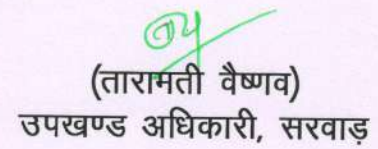 (तारामती वैष्णव)
उपखण्ड अधिकारी, सरवाड़